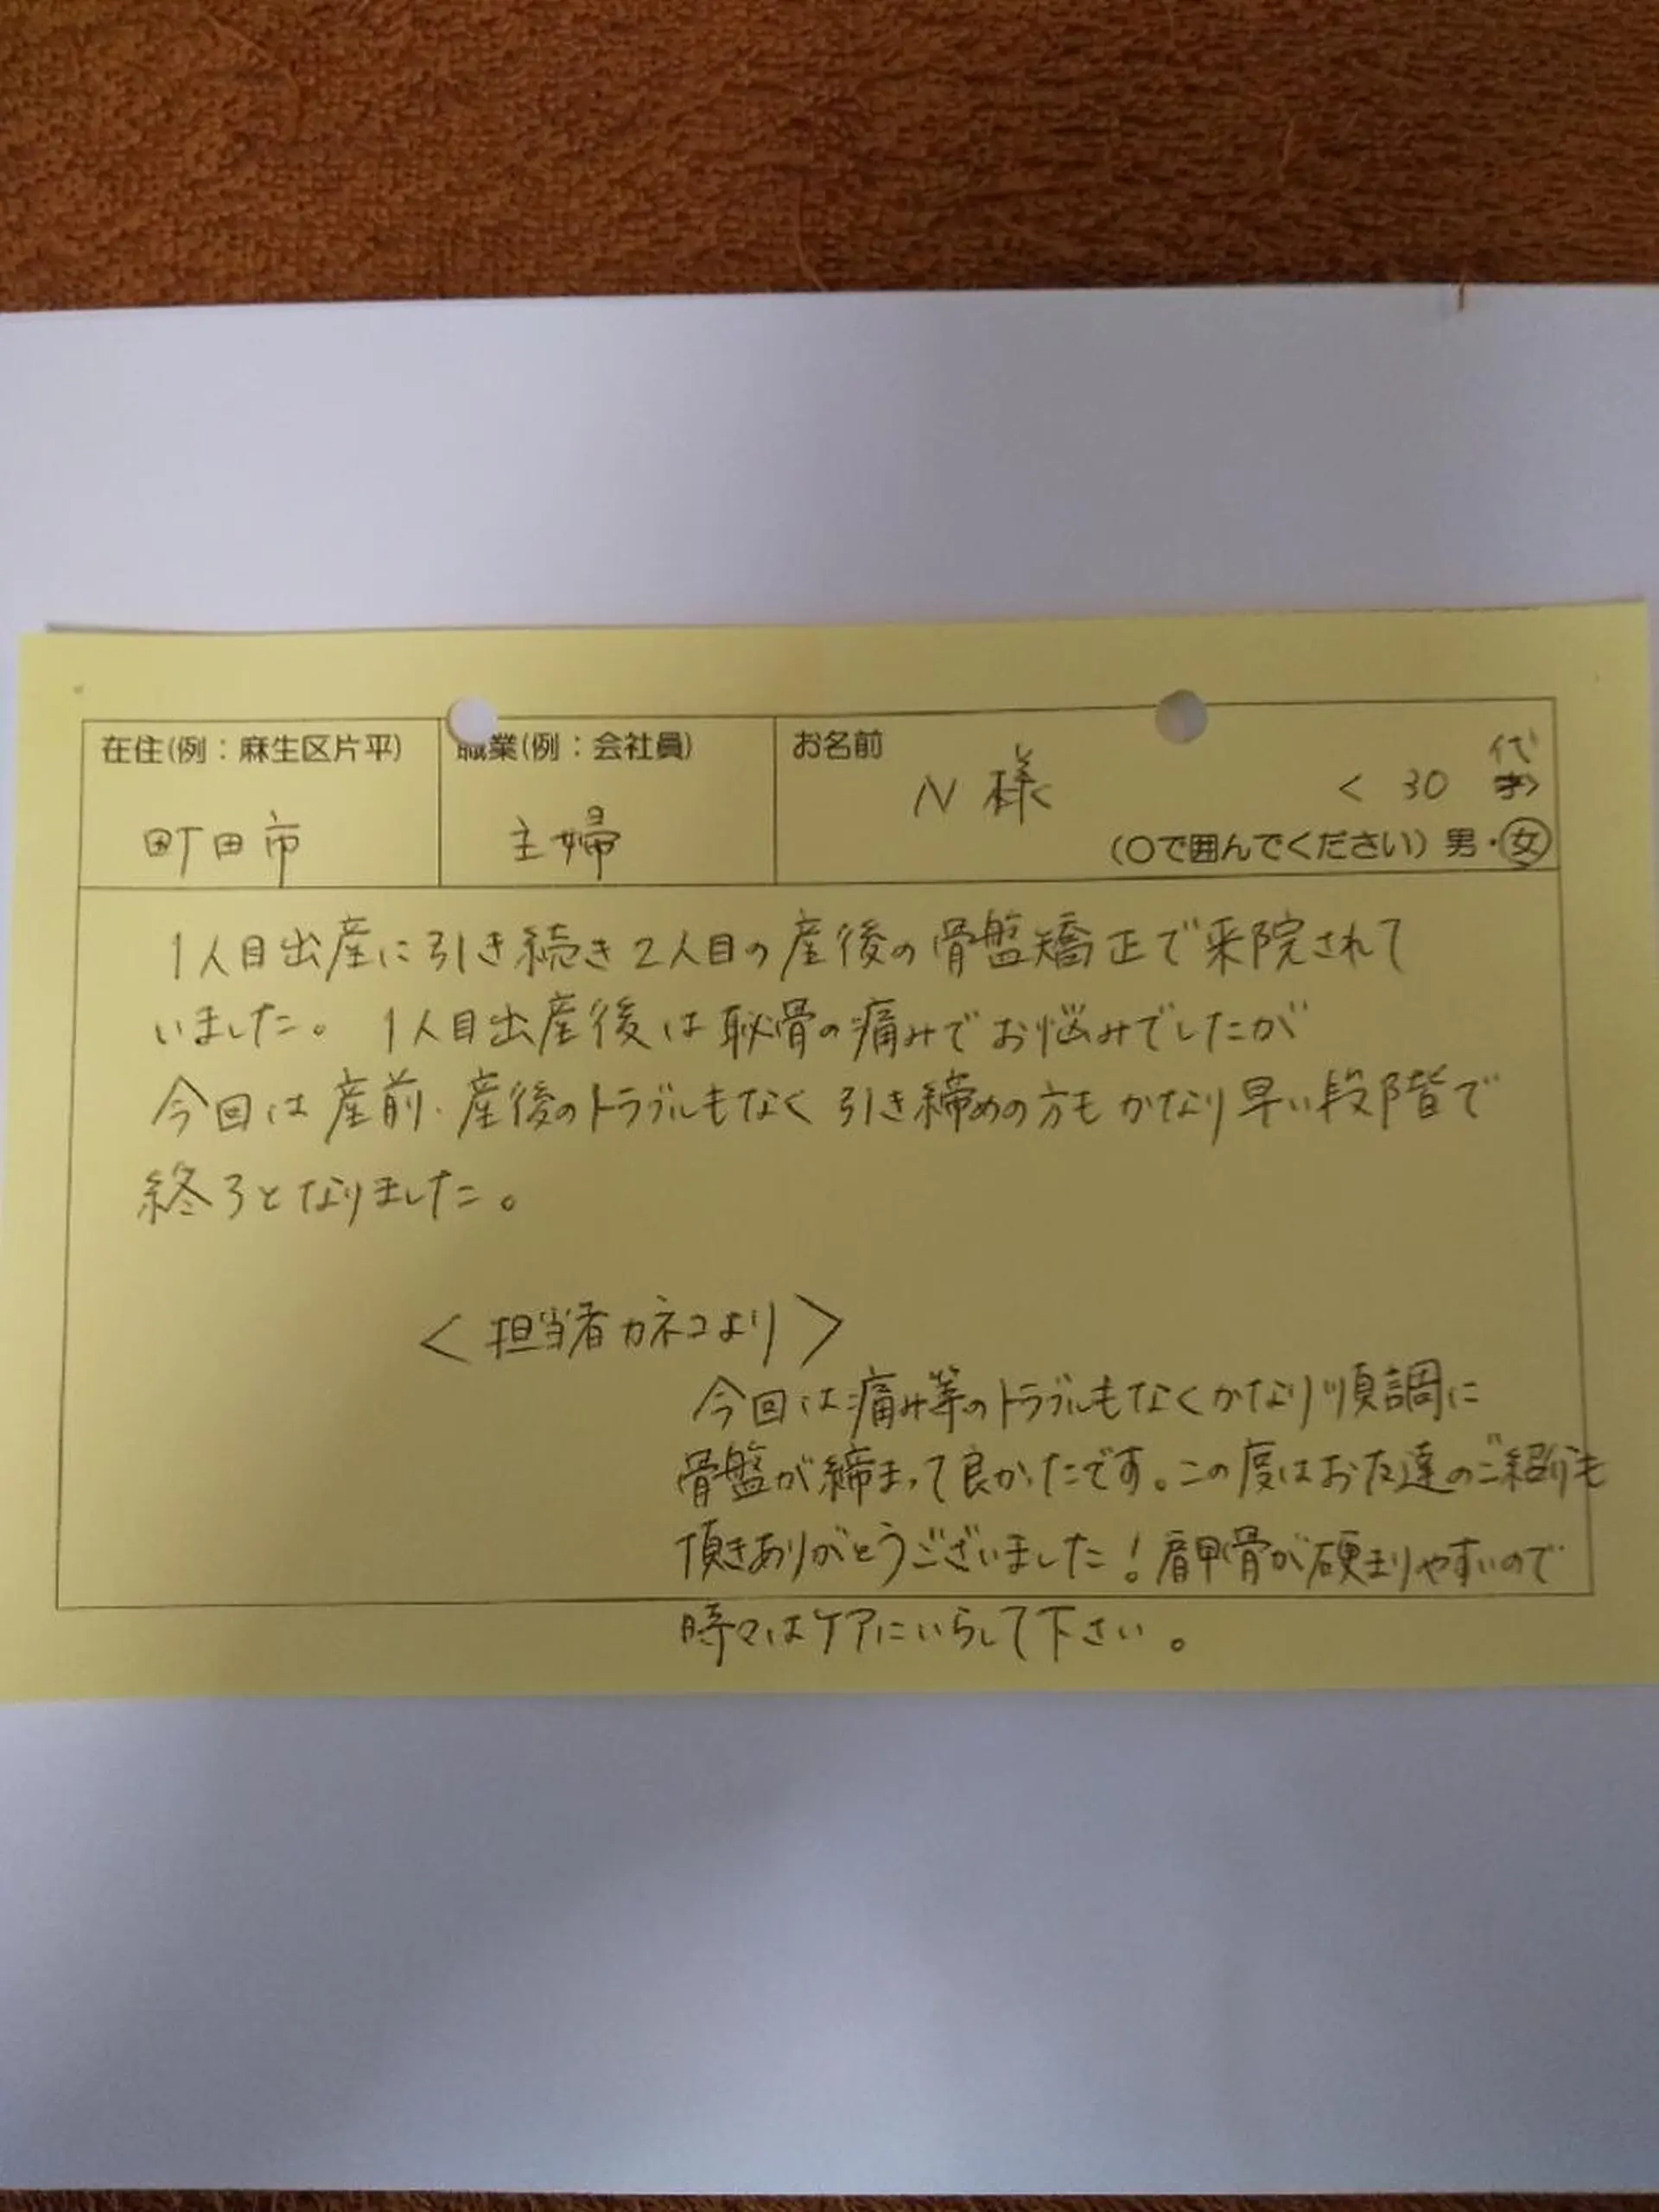 在住(例：麻生区片平)
町田市
職業(例：会社員)
主婦
お名前
N 様
< 30 代
(○で囲んでください) 男・女
1人目出産に引き続き2人目の産後の骨盤矯正で来院されて
いました。 1人目出産後は恥骨の痛みでお悩みでしたが
今回は産前・産後のトラブルもなく引き締めの方もかなり早い段階で
終了となりました。
<担当者カネコより>
今回は痛み等のトラブルもなくかなり順調に
骨盤が締まって良かったです。この度はお友達のご紹介も
頂きありがとうございました！肩甲骨が硬まりやすいので
時々はケアにいらして下さい。